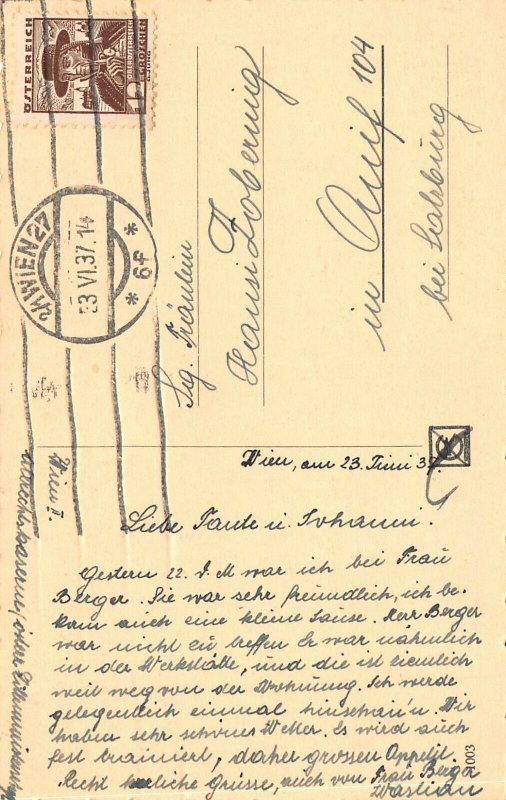 ÖSTERREICH
12 GROSCHEN
OBERÖSTERREICH
WIEN 27
23.VI.37.14
* 6f *
Sig. Fräulein
Hansi Zobernig
in Anif 104
bei Salzburg
Wien, am 23. Juni 37.
Liebe Tante u. Johanni.
Gestern 22. d. M war ich bei Frau
Berger. Sie war sehr freundlich, ich be-
kam auch eine kleine Jause. Herr Berger
war nicht zu treffen Er war nähmlich
in der Werkstätte, und die ist ziemlich
weit weg von der Wohnung. Ich werde
gelegentlich einmal hinschau'n. Wir
haben sehr schönes Wetter. Es wird auch
fest trainiert, daher grossen Appetit.
Recht herzliche Grüsse, auch von Frau Berger
Wastian
Wien II.
1003